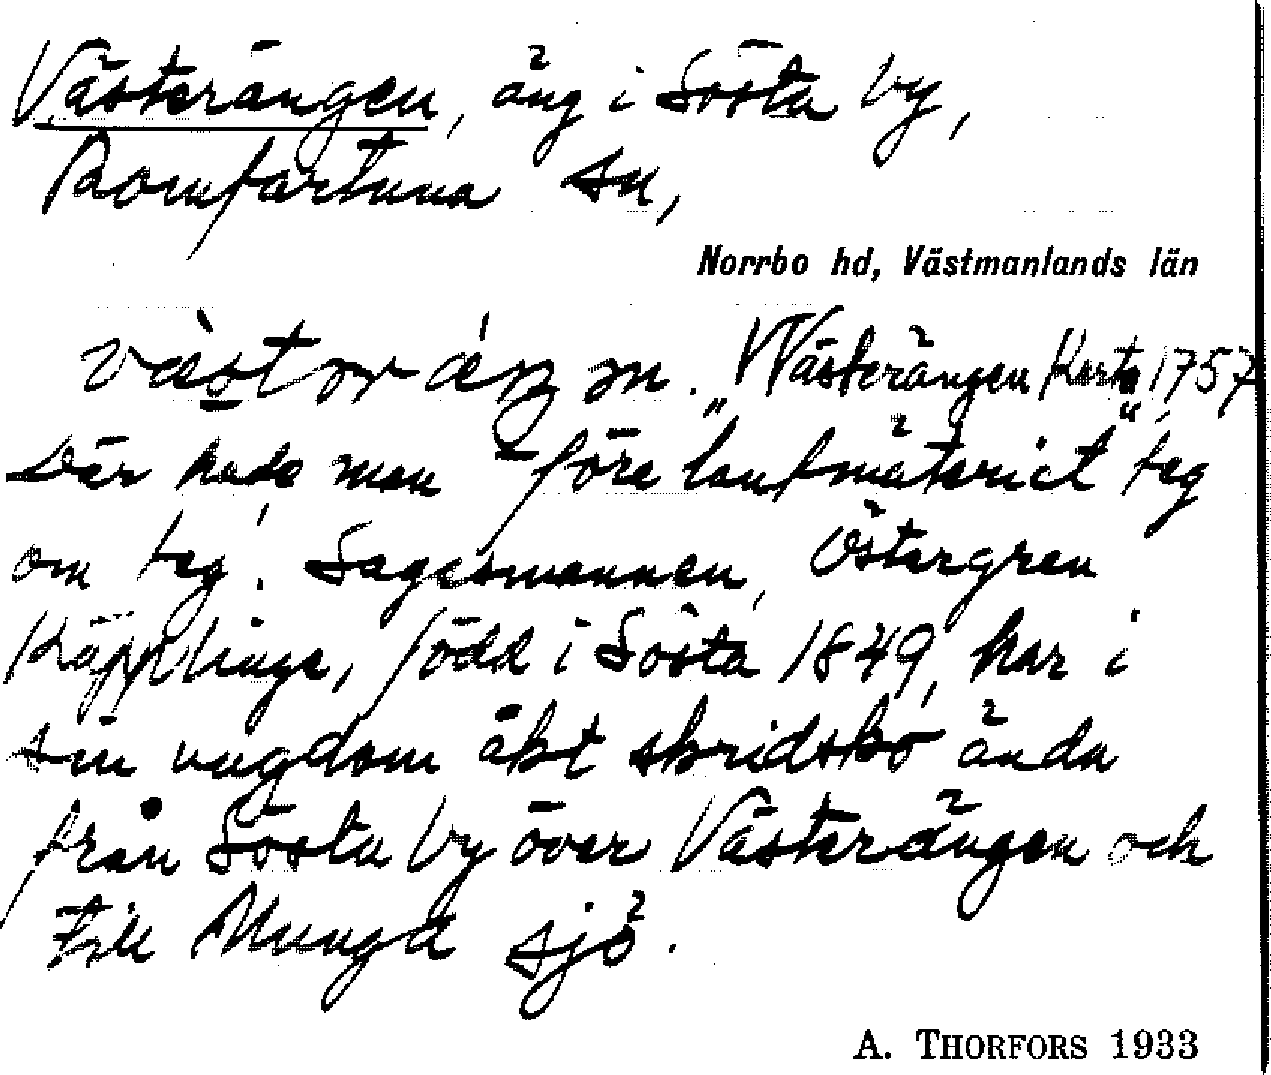 Västerängen, äng i Sösta by,
Romfartuna sn,
Norrbo hd, Västmanlands län
"Wästerängen Karta" 1757
Där hade man "före lantmäteriet" teg
om teg. Sagesmannen, Östergren
Käpplinge, född i Sösta 1849, har i
sin ungdom åkt skridsko ända
från Sösta by över Västerängen och
till Munga sjö.
A. THORFORS 1933